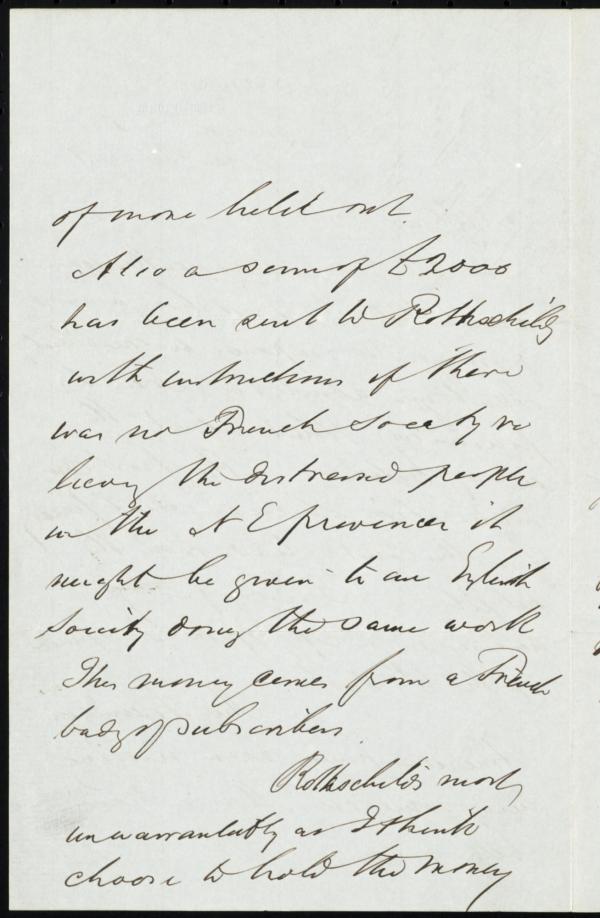 of more held out.
Also a sum of £2000
has been sent to Rothschilds
with instructions if there
was no French Society re
lieving the distressed people
in the N E provinces it
might be given to an English
Society doing the same work
This money comes from a French
body of subscribers
Rothschilds most
unwarrantably as I think
choose to hold the money